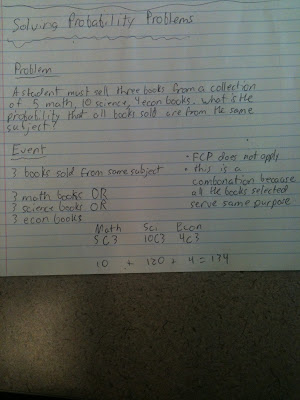 Solving Probability Problems
Problem
A student must sell three books from a collection
of 5 math, 10 science, 4 econ books. What is the
probability that all books sold are from the same
subject?
Event
3 books sold from same subject
3 math books OR
3 science books OR
3 econ books
• FCP does not apply
• this is a
combonation because
all the books selected
serve same purpose
Math Sci Econ
5C3 10C3 4C3
10 + 120 + 4 = 134